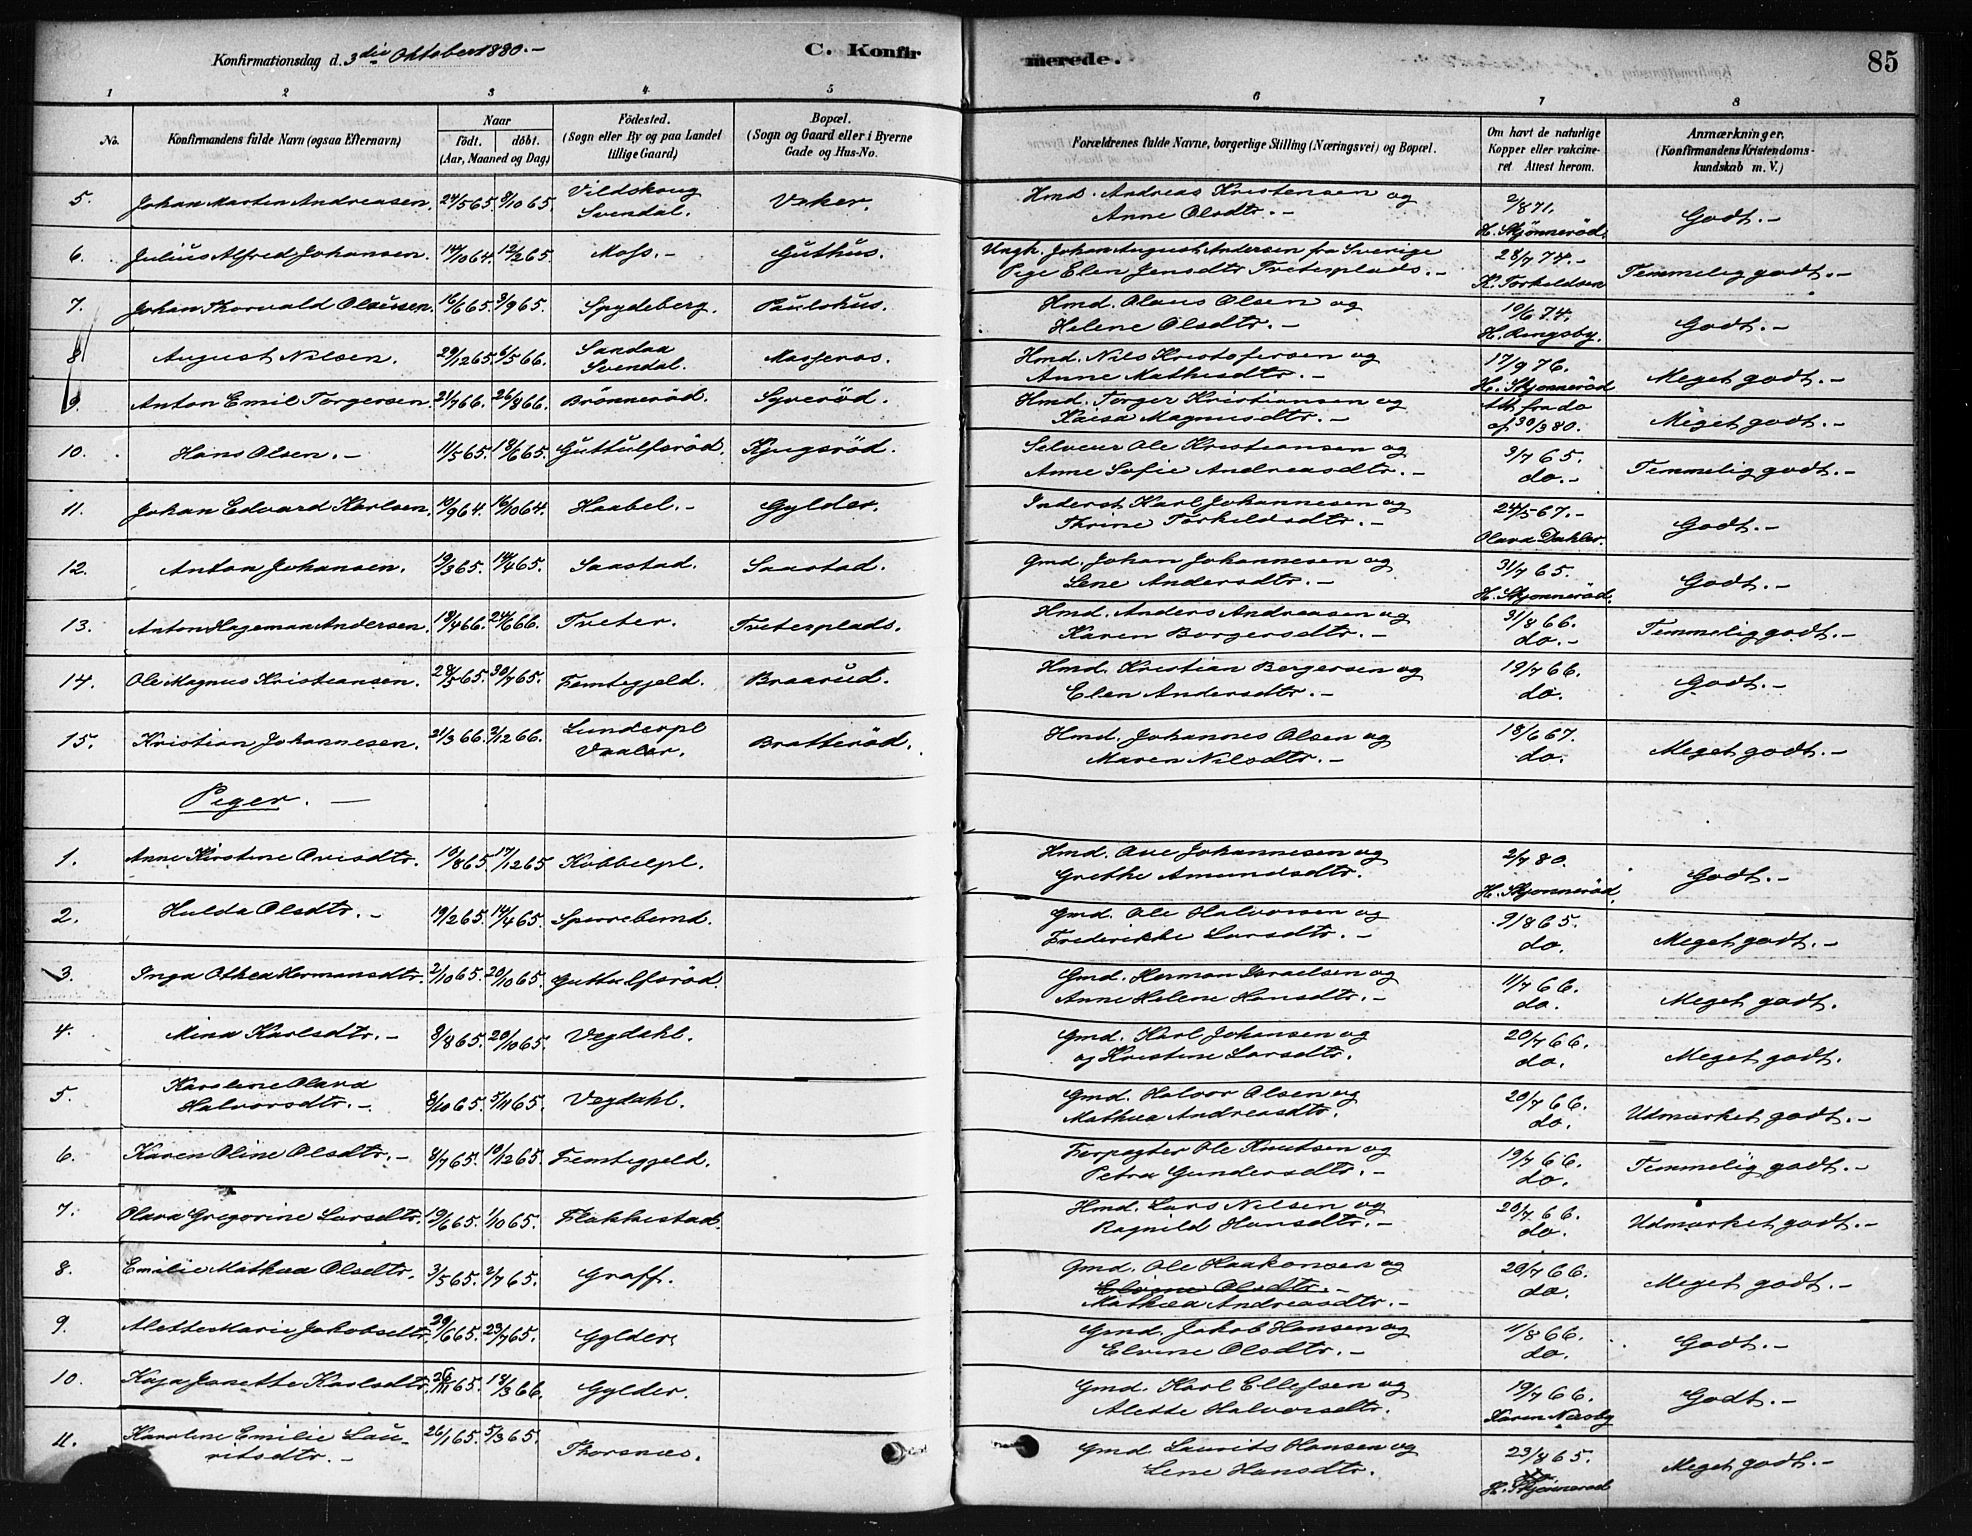 Konfirmationsdag d. 3die Oktober 1880.— C. Konfirmerede. 85
1 2 3 4 5 6 7 8
No. Konfirmandens fulde Navn (ogsaa Efternavn) Naar født. døbt. (Aar, Maaned og Dag) Fødested. (Sogn eller By og paa Landet tillige Gaard) Bopæl. (Sogn og Gaard eller i Byerne Gade og Hus-No. Forældrenes fulde Navne, borgerlige Stilling (Næringsvei) og Bopæl. Om havt de naturlige Kopper eller vakcineret Attest herom. Anmærkninger, (Konfirmandens Kristendomskundskab m. V.)
5. Johan Martin Andreasen. 24/5 65. 8/10 65. Vildskoug Svendal. Veker. Hmd. Andreas Kristensen og Anne Olsdtr.— 2/8 71. H. Skjønnerød. Godt.—
6. Julius Alfred Johansen. 14/10 64. 12/2 65. Moss.— Guthus. Ungk. Johan August Andersen fra Sverige Pige Elen Jensdtr Tveterplads.— 28/7 74.— K. Torkeldsen Temmelig godt.—
7. Johan Thorvald Olausen. 16/6 65. 3/9 65. Spydeberg. Paulshus. Hmd. Olaus Olsen og Helene Olsdtr.— 19/6 74. H. Ringsby. Godt.—
8 August Nilsen. 29/12 65. 6/5 66. Sandaa Svendal. Masseros. Hmd. Nils Kristofersen og Anne Mathisdtr.— 17/9 76. H. Skjønnerød Meget godt.—
9 Anton Emil Torgersen 21/7 66. 26/8 66. Brønnerød. Syverød. Hmd. Torger Kristiansen og Kaisa Magnusdtr.— Att. fra do af 30/3 80. Meget godt.—
10. Hans Olsen.— 11/5 65. 18/6 65. Guttulfsrød. Kjugsrød. Selveier Ole Kristiansen og Anne Sofie Andreasdtr.— 3/7 65. do.— Temmelig godt.—
11. Johan Edvard Karlsen. 19/9 64. 16/10 64. Haabel.— Gylder. Inderst Karl Johannesen og Thrine Torkeldsdtr.— 24/5 67.— Olava Dahler. Godt.—
12. Anton Johansen. 19/3 65. 14/4 65. Saastad. Saastad. Gmd. Johan Johannesen og Lene Andersdtr.— 31/7 65. H. Skjønnerød. Godt.—
13. Anton Hageman Andersen. 18/4 66. 24/6 66. Tveter. Tveterplads. Hmd. Anders Andreasen og Karen Borgersdtr.— 31/8 66. do.— Temmelig godt.—
14. Ole Magnus Kristiansen. 28/5 65. 30/7 65. Femtegjeld. Braarud. Hmd. Kristian Bergersen og Elen Andersdtr.— 19/7 66. do. Godt.—
15. Kristian Johannesen. 21/3 66. 2/12 66. Lunderpl Vaaler. Bratterød. Hmd. Johannes Olsen og Maren Nilsdtr.— 18/6 67. do. Meget godt.—
Piger.—
1. Anne Kirstine Ovisdtr. 10/8 65. 17/12 65 Kobbelpl. Hmd. Ove Johannesen og Grethe Amundsdtr. 2/7 80. H. Skjønnerød. Godt.—
2. Hulda Olsdtr.— 19/2 65. 14/4 65. Sperrebund. Gmd. Ole Halvorsen og Frederikke Larsdtr.— 9/8 65. do. Meget godt.—
3. Inga Othea Hermansdtr. 2/10 65. 20/10 65. Guttulfsrød. Gmd. Herman Israelsen og Anne Helene Hansdtr.— 11/7 66. do. Meget godt.
4. Mina Karlsdtr.— 8/8 65. 20/10 65. Vegdahl. Gmd. Karl Johansen og og Kristine Larsdtr. 20/7 66. do. Meget godt.
5. Karoline Olava Halvorsdtr.— 8/10 65. 5/11 65. Vegdahl. Gmd. Halvor Olsen og Mathea Andreasdtr. 20/7 66. do. Udmærket godt.—
6. Karen Oline Olsdtr.— 8/7 65. 10/12 65. Femtegjeld. Forpagter Ole Knutsen og Petra Gundersdtr.— 19/7 66. do. Temmelig godt.—
7. Olava Gregorine Larsdtr. 19/6 65. 1/10 65. Flakkestad. Hmd. Lars Nilsen og Ragnild Hansdtr.— 20/7 66. do. Udmærket godt.—
8. Emilie Mathea Olsdtr. 3/5 65. 2/7 65. Graff. Gmd. Ole Haakonsen og Elvine Olsdtr.— Mathea Andreasdtr.— 20/7 66. do. Meget godt.—
9. Alette Marie Jakobsdtr. 29/6 65. 23/7 65. Gylder. Gmd. Jakob Hansen og Elvine Olsdtr.— 11/8 66. do. Godt.—
10. Kaja Janette Karlsdtr. 26/11 65. 18/3 66. Gylder. Gmd. Karl Ellefsen og Alette Halvorsdtr. 19/7 66. Karen Næsby Godt.—
11. Karoline Emilie Lauritsdtr.— 26/1 65. 5/3 65. Thorsnæs. Gmd. Laurits Hansen og Lene Hansdtr. 23/8 65. H. Skjønnerød Meget godt.—